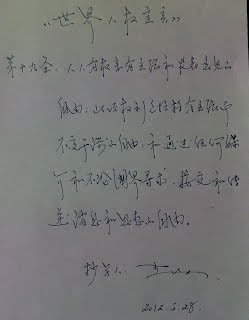 《世界人权宣言》
第十九条、人人有权享有主张和发表意见的
自由；此项权利包括持有主张而
不受干涉的自由；和通过任何媒
介和不论国界寻求、接受和传
递消息和思想的自由。
抄写人：王
2012.5.28.